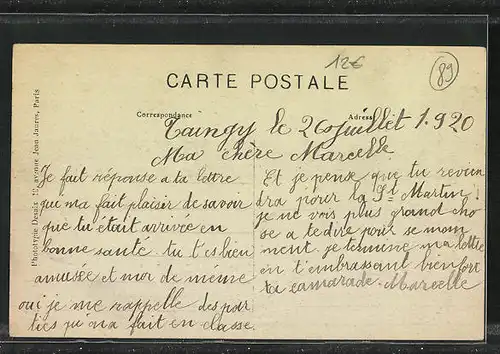 12€
89
CARTE POSTALE
Correspondance
Adresse
Phototypie Desaix 10 avenue Jean Jaurès, Paris
Taingy le 26 juillet 1.920
Ma chère Marcelle
Je fait réponse a ta lettre
que ma fait plaisir de savoir
que tu était arrivée en
bonne santé. tu t'es bien
amusée et moi de même
oui je me rappelle des par
ties qu'on a fait en classe.
Et je pense que tu revien
dra pour la St Martin.
je ne vois plus grand cho
se a te dire pour se mom
ment. je termine ma lettre
en t'embrassant bien fort
ta camarade. Marcelle